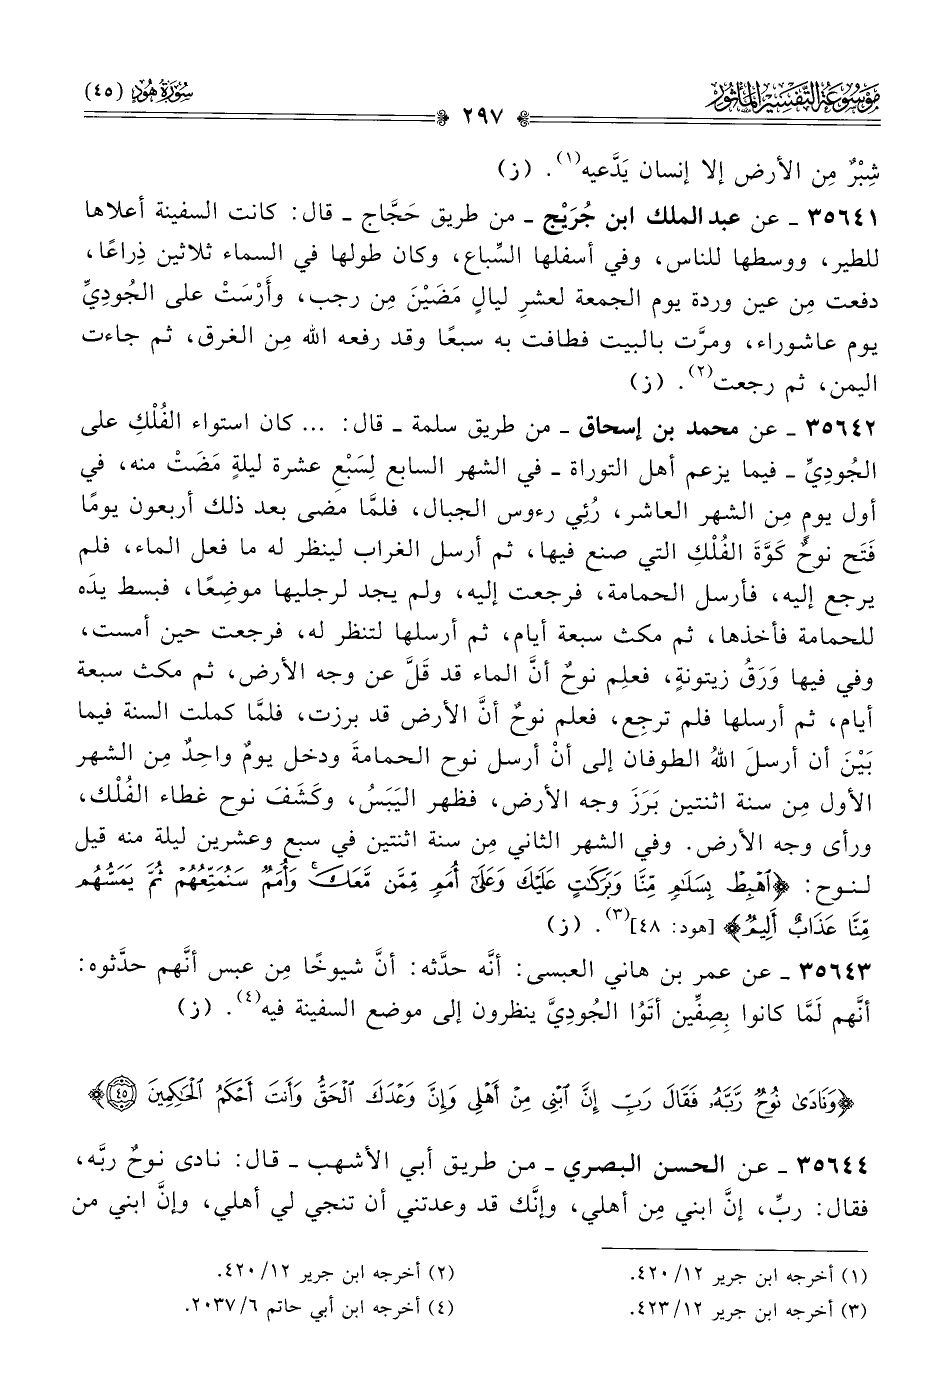 موسوعة التفسير المأثور
سورة هود (٤٥)
٢٩٧
شِبْرٌ مِن الأرض إلا إنسان يَدَّعيه(١). (ز)
٣٥٦٤١ ـ عن عبد الملك ابن جُرَيْج ـ من طريق حَجَّاج ـ قال: كانت السفينة أعلاها
للطير، ووسطها للناس، وفي أسفلها السِّباع، وكان طولها في السماء ثلاثين ذِراعًا،
دفعت مِن عين وردة يوم الجمعة لعشرِ ليالٍ مَضَيْنَ مِن رجب، وأَرْسَتْ على الجُودِيِّ
يوم عاشوراء، ومرَّت بالبيت فطافت به سبعًا وقد رفعه الله مِن الغرق، ثم جاءت
اليمن، ثم رجعت(٢). (ز)
٣٥٦٤٢ ـ عن محمد بن إسحاق ـ من طريق سلمة ـ قال: ... كان استواء الفُلْكِ على
الجُودِيِّ ـ فيما يزعم أهل التوراة ـ في الشهر السابع لِسَبْعِ عشرة ليلةٍ مَضَتْ منه، في
أول يومٍ مِن الشهر العاشر، رُئِي رءوس الجبال، فلمَّا مضى بعد ذلك أربعون يومًا
فَتَح نوحٌ كَوَّةَ الفُلْكِ التي صنع فيها، ثم أرسل الغراب لينظر له ما فعل الماء، فلم
يرجع إليه، فأرسل الحمامة، فرجعت إليه، ولم يجد لرجليها موضِعًا، فبسط يدَه
للحمامة فأخذها، ثم مكث سبعة أيام، ثم أرسلها لتنظر له، فرجعت حين أمست،
وفي فيها وَرَقُ زيتونةٍ، فعلِم نوحٌ أنَّ الماء قد قَلَّ عن وجه الأرض، ثم مكث سبعة
أيام، ثم أرسلها فلم ترجِع، فعلم نوحٌ أنَّ الأرض قد برزت، فلمَّا كملت السنة فيما
بَيْنَ أن أرسلَ اللهُ الطوفان إلى أنْ أرسل نوح الحمامةَ ودخل يومٌ واحِدٌ مِن الشهر
الأول مِن سنة اثنتين بَرَزَ وجه الأرض، فظهر اليَبَسُ، وكَشَفَ نوح غطاء الفُلْك،
ورأى وجه الأرض. وفي الشهر الثاني مِن سنة اثنتين في سبع وعشرين ليلة منه قيل
لنوح: ﴿ٱهْبِطْ بِسَلَٰمٍ مِّنَّا وَبَرَكَٰتٍ عَلَيْكَ وَعَلَىٰٓ أُمَمٍ مِّمَّن مَّعَكَ ۚ وَأُمَمٌ سَنُمَتِّعُهُمْ ثُمَّ يَمَسُّهُم
مِّنَّا عَذَابٌ أَلِيمٌ﴾ [هود: ٤٨](٣). (ز)
٣٥٦٤٣ ـ عن عمر بن هاني العبسى: أنَّه حدَّثه: أنَّ شيوخًا مِن عبس أنَّهم حدَّثوه:
أنَّهم لَمَّا كانوا بِصِفِّين أتَوُا الجُودِيَّ ينظرون إلى موضع السفينة فيه(٤). (ز)
﴿وَنَادَىٰ نُوحٌ رَّبَّهُۥ فَقَالَ رَبِّ إِنَّ ٱبْنِى مِنْ أَهْلِى وَإِنَّ وَعْدَكَ ٱلْحَقُّ وَأَنتَ أَحْكَمُ ٱلْحَٰكِمِينَ ٤٥﴾
٣٥٦٤٤ ـ عن الحسن البصري ـ من طريق أبي الأشهب ـ قال: نادى نوحٌ ربَّه،
فقال: ربِّ، إنَّ ابني مِن أهلي، وإنَّك قد وعدتني أن تنجي لي أهلي، وإنَّ ابني من
(١) أخرجه ابن جرير ١٢/ ٤٢٠.
(٢) أخرجه ابن جرير ١٢/ ٤٢٠.
(٣) أخرجه ابن جرير ١٢/ ٤٢٣.
(٤) أخرجه ابن أبي حاتم ٦/ ٢٠٣٧.